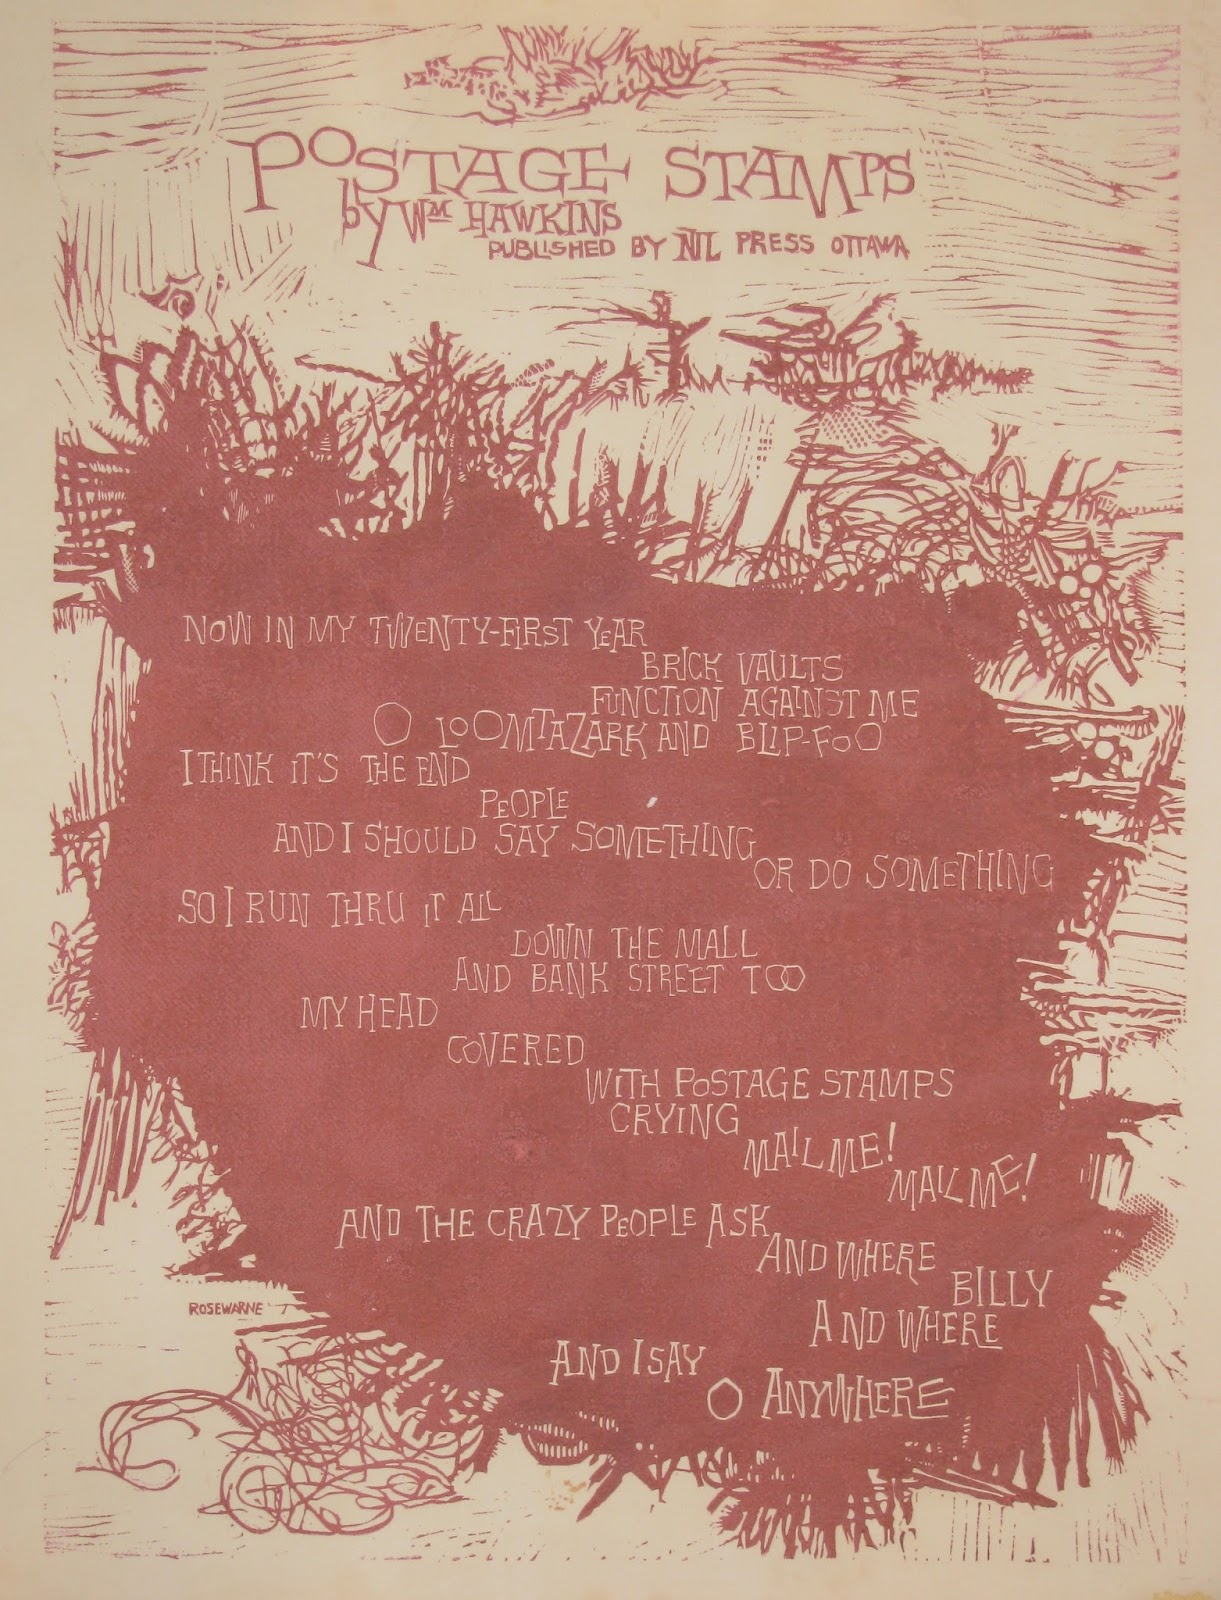 POSTAGE STAMPS
by WM HAWKINS
PUBLISHED BY NIL PRESS OTTAWA
NOW IN MY TWENTY-FIRST YEAR
BRICK VAULTS
FUNCTION AGAINST ME
O LOOMTAZARK AND BLIP-FOO
I THINK IT'S THE END
PEOPLE
AND I SHOULD SAY SOMETHING
OR DO SOMETHING
SO I RUN THRU IT ALL
DOWN THE MALL
AND BANK STREET TOO
MY HEAD
COVERED
WITH POSTAGE STAMPS
CRYING
MAIL ME!
MAIL ME!
AND THE CRAZY PEOPLE ASK
AND WHERE
BILLY
AND WHERE
AND I SAY
O ANYWHERE
ROSEWARNE